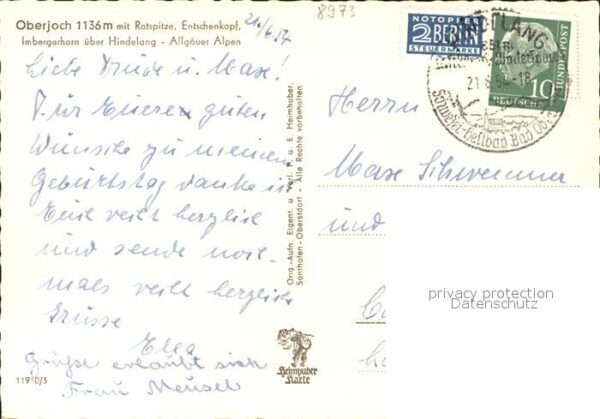 Oberjoch 1136m mit Rotspitze, Entschenkopf,
Imbergerhorn über Hindelang - Allgäuer Alpen
21./6.54
8973
Liebe Trude u. Max!
Für Eueren guten
Wünsche zu meinem
Geburtstag danke ich
Euch recht herzlich
und sende noch-
mals recht herzliche
Grüsse
Elea
Grüße erlaubt sich
Frau Meusel
11910/5
Orig.-Aufn. Eigent. u. Verl. F. u. E. Heimhuber.
Sonthofen-Oberstdorf - Alle Rechte vorbehalten
Heimhuber
Karte
NOTOPFER
2 BERLIN
STEUERMARKE
HINDELANG
21.6.54-18
Bad
10
DEUTSCHE
BUNDESPOST
Herrn
Max Schwemmer
und
privacy protection
Datenschutz